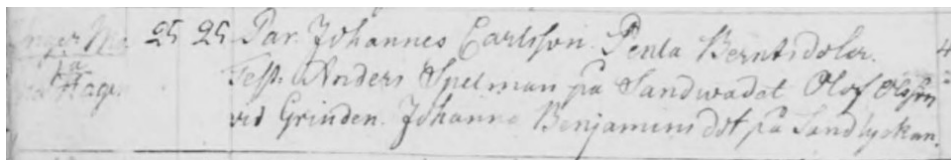 Inger Ma 25 25 Par. Johannes Carlsson. Penla Berntsdoter.
på Hage Test. Anders Spelman på Sandwadet Olof Olsson
vid Grinden. Johanna Benjamins dot på Sandlyckan.